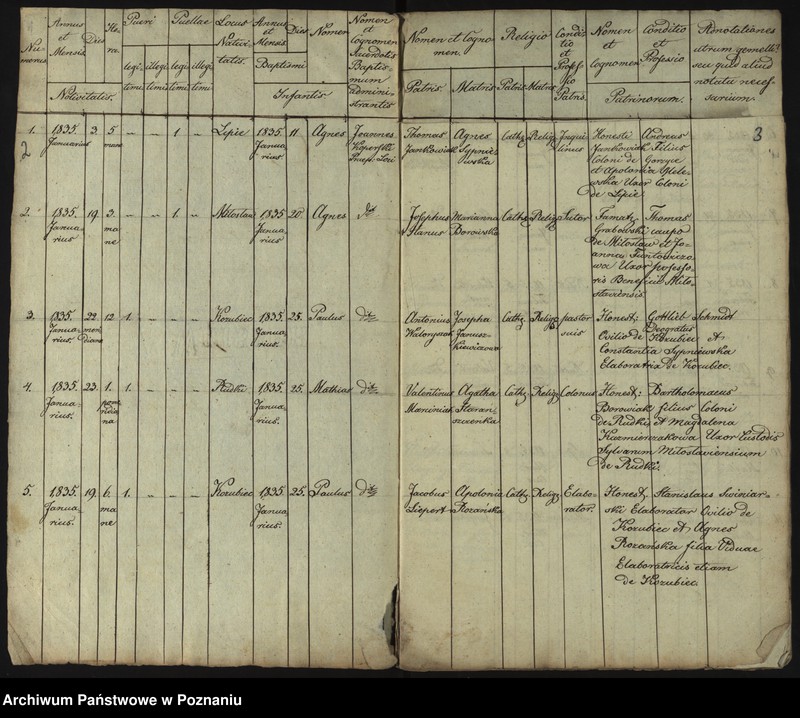 Numerus
Annus et Mensis
Dies
Hora
Pueri
Puellae
Locus Nativitatis
Annus et Mensis
Dies
Nomen
Nomen et Cognomen Sacerdotis Baptismum Administrantis
legitimi
illegitimi
legitimi
illegitimi
Nativitatis
Baptismi
Infantis
Nomen et Cognomen
Religio
Conditio et Professio Patris
Nomen et Cognomen
Conditio et Professio
Adnotationes utrum gemelli seu quid aliud notatu necessarium
Patris
Matris
Patris
Matris
Patrinorum
3
2
1. 1835. Januarius 3 5 mane " " 1 " Lipie 1835. Januarius 11 Agnes Joannes
Thomas Jankowiak Agnes Sypniewska Cath. Relig. Inquilinus
Honesti Andreas
Jankowiak Filius
Coloni de
et Apolonia
Uxor Coloni
de Lipie
2. 1835. Januarius 19. 3. mane " " 1. " Milosław 1835 Januarius 20 Agnes dto
Josephus Stanus Marianna Borowska Cath. Relig. Sutor
Famat. Thomas
Grabowski caupo
de Miloslaw et Jo-
anna
Uxor professo-
ris Beneficii Milo-
slaviensis
3. 1835. Januarius 22 meridiano 12 1. " " " Kozubiec 1835. Januarius 25. Paulus dto
Antonius Josepha Januszkiewiczowa Cath. Relig. pastor suis
Honest: Gottlieb Schmidt
Ovilio de Kozubiec et
Constantia Sypniewska
Elaboratrix de Kozubiec.
4. 1835. Januarius. 23. 1. pomeridiana 1. " " " Rudki 1835. Januarius. 25. Mathias dto
Valentinus Marciniak Agatha Cath. Relig. Colonus
Honest: Bartholomaeus
Borowiak filius Coloni
de Rudki et Magdalena
Kazmierczakowa Uxor Custodis
Sylvarum Miloslaviensium
de Rudki.
5. 1835. Januarius. 19. 6. mane 1. " " " Kozubiec 1835. Januarius. 25. Paulus dto
Jacobus Siepert Apolonia Rozańska Cath. Relig. Elaborator.
Honest: Stanislaus Swiniar-
ski Elaborator Ovilio de
Kozubiec et Agnes
Rozańska filia Viduae
Elaboratricis etiam
de Kozubiec.
Archiwum Państwowe w Poznaniu